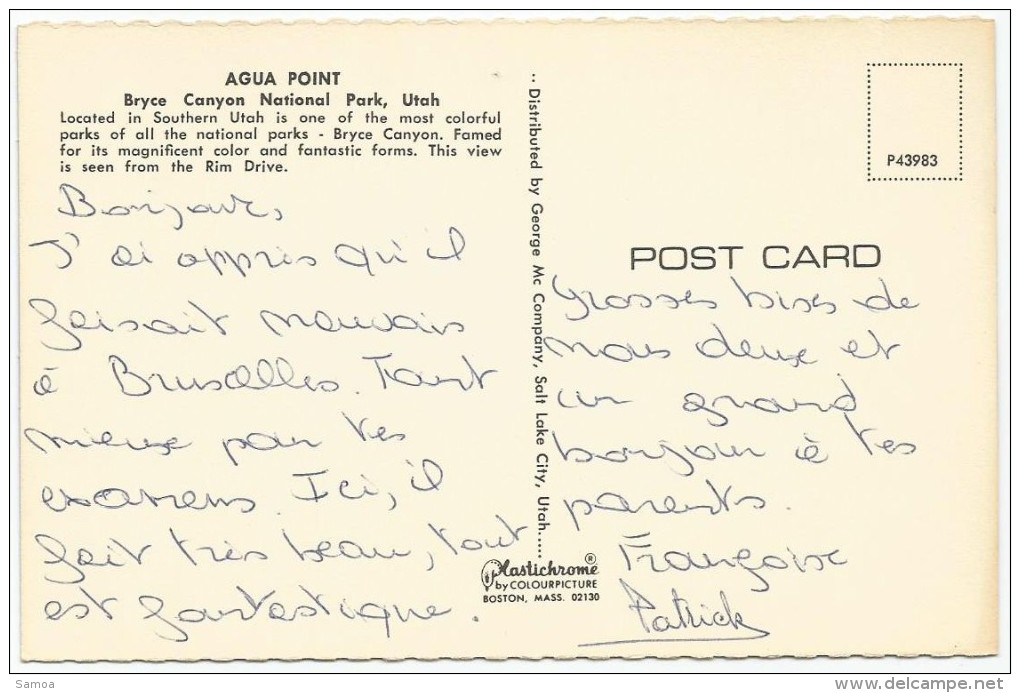 AGUA POINT
Bryce Canyon National Park, Utah
Located in Southern Utah is one of the most colorful
parks of all the national parks - Bryce Canyon. Famed
for its magnificent color and fantastic forms. This view
is seen from the Rim Drive.
Bonjour,
J'ai appris qu'il
faisait mauvais
à Bruxelles. Tant
mieux pour tes
examens. Ici, il
fait très beau, tout
est fantastique.
..Distributed by George Mc Company, Salt Lake City, Utah.....
Plastichrome ®
by COLOURPICTURE
BOSTON, MASS. 02130
P43983
POST CARD
Grosses bises de
nous deux et
un grand
bonjour à tes
parents.
Françoise
Patrick
Samoa
delcampe.net